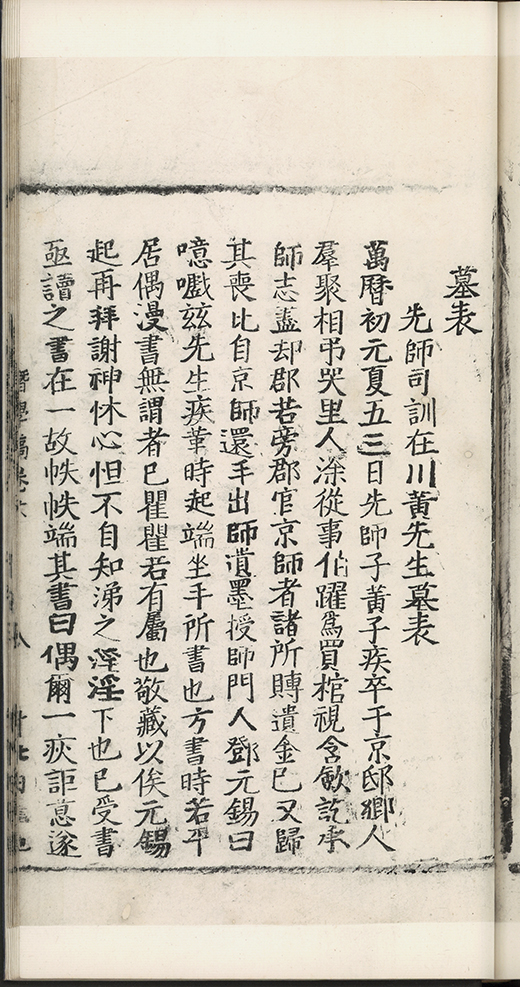 墓表
先師司訓在川黃先生墓表
萬曆初元夏五三日先師子黃子疾卒于京邸鄉人
羣聚相弔哭里人涂從事伯躍爲買棺視含歛訖承
師志盡却郡若旁郡官京師者諸所賻遺金已又歸
其喪比自京師還手出師遺墨授師門人鄧元錫曰
噫嚱玆先生疾革時起端坐手所書也方書時若平
居偶漫書無謂者已瞿瞿若有屬也敬藏以俟元錫
起再拜謝神怵心怛不自知涕之淫淫下也已受書
亟讀之書在一故帙帙端其書曰偶爾一疾詎意遂
潛學稿卷六
八